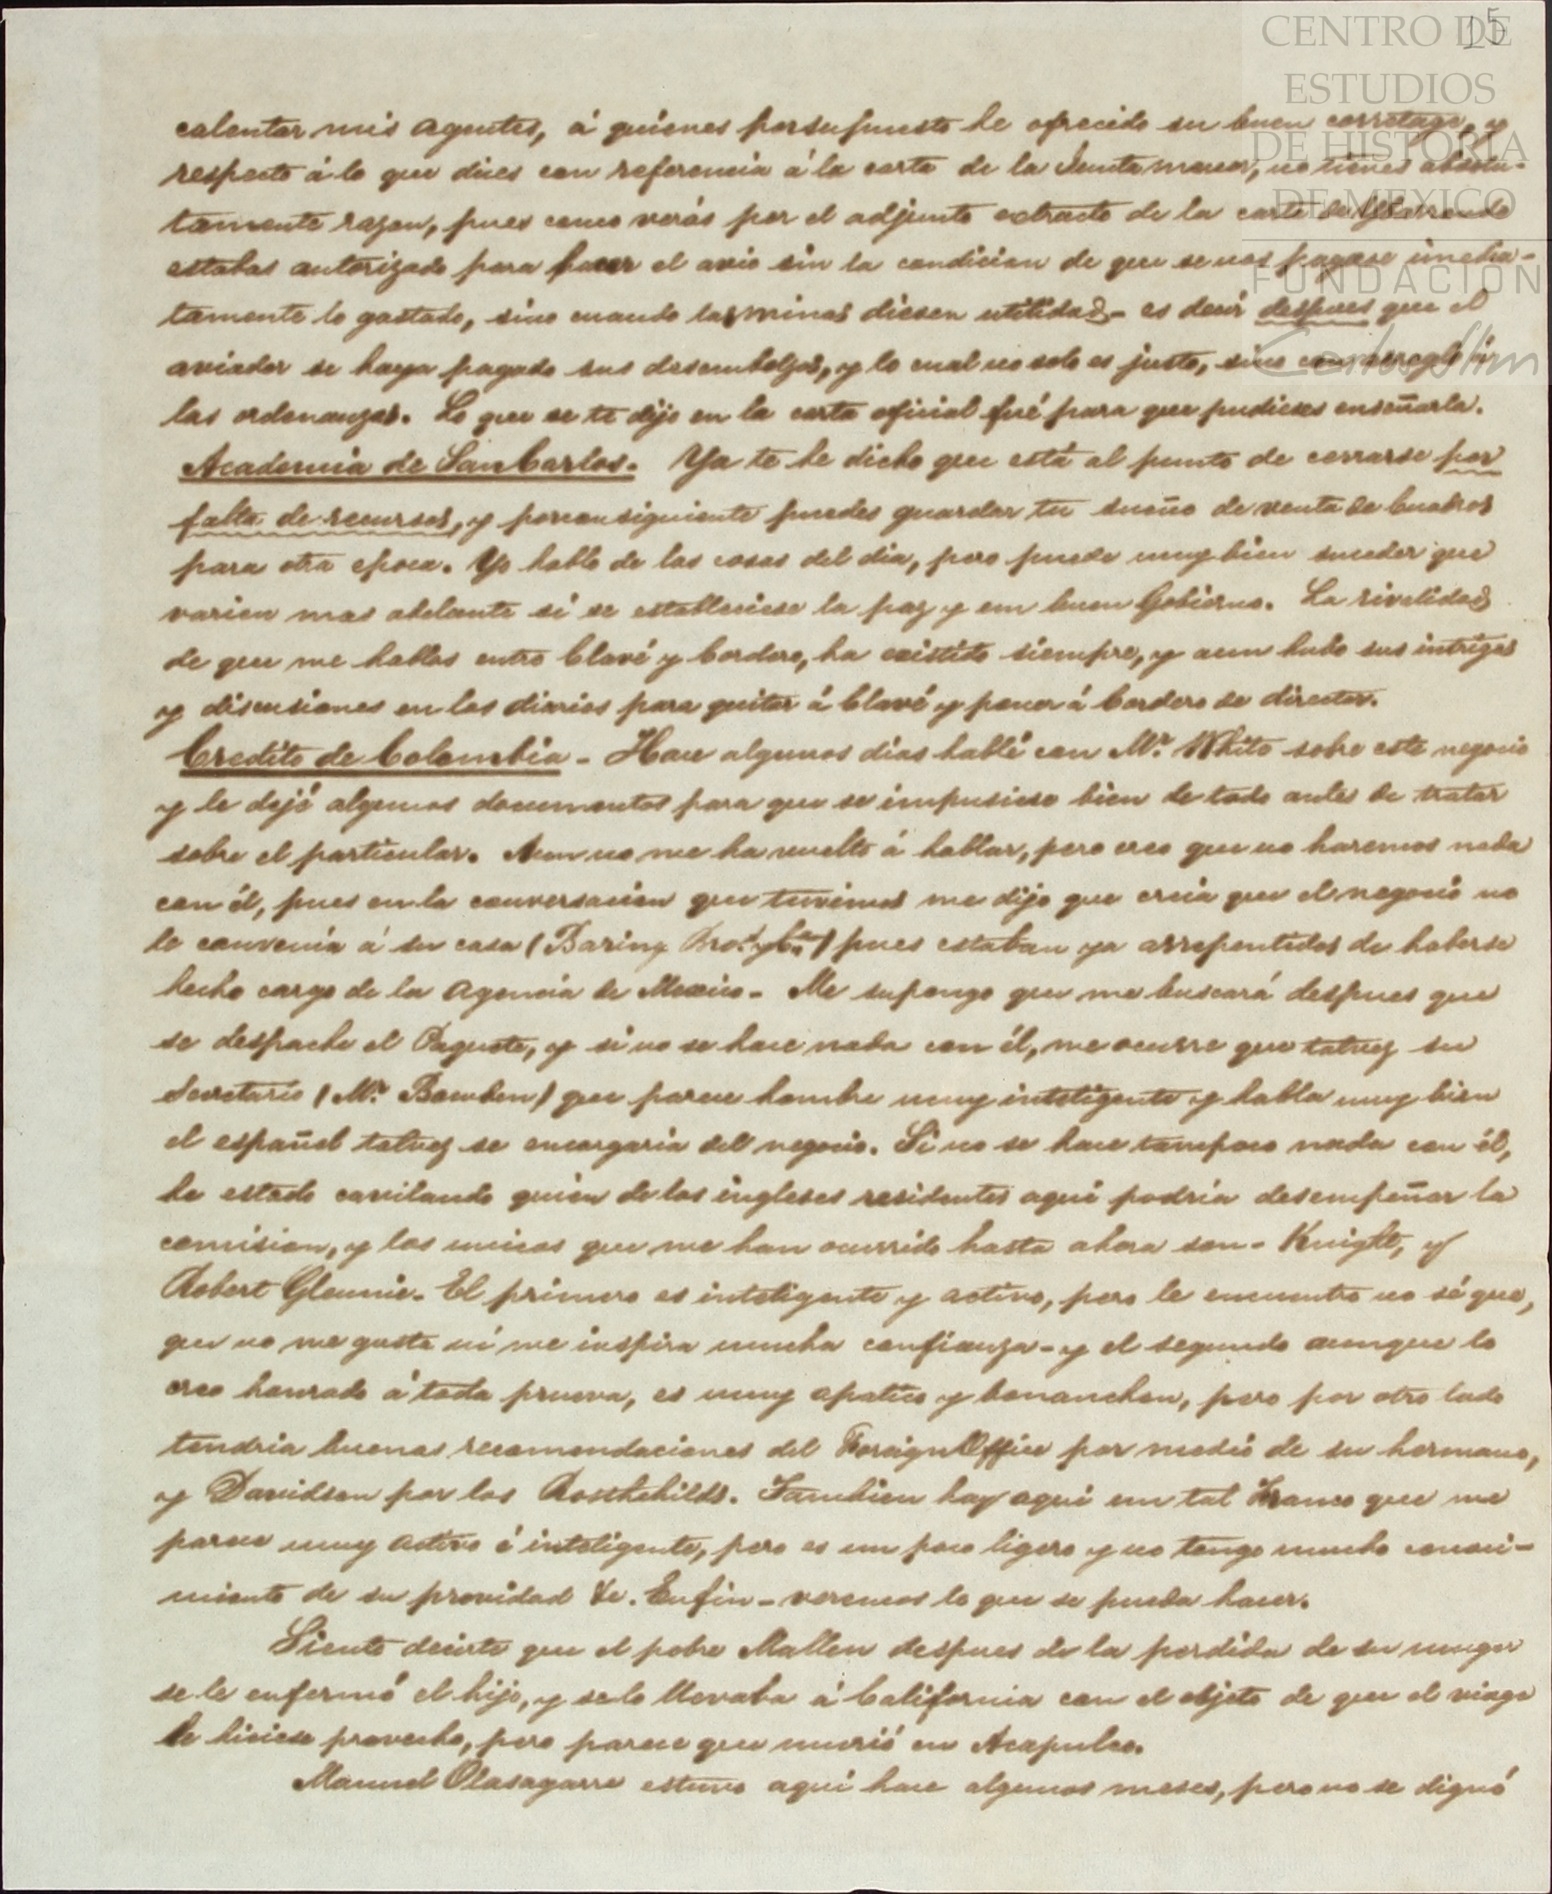 15
CENTRO DE
ESTUDIOS
DE HISTORIA
DE MEXICO
FUNDACION
Carlos Slim
calentar mis agentes, á quienes porsupuesto he ofrecido su buen corretage, y
respecto á lo que dices con referencia á la carta de la Junta menor, no tienes absolu-
tamente razon, pues como verás por el adjunto extracto de la carta de
estabas autorizado para hacer el avio sin la condicion de que se nos pagase
tamente lo gastado, sino cuando las minas diesen utilidad - es decir despues que el
aviador se haya pagado sus desembolsos, y lo cual no solo es justo, sino con arreglo á
las ordenanzas. Lo que se te dijo en la carta oficial fué para que pudieses enseñarla.
Academia de San Carlos. Ya te he dicho que está al punto de cerrarse por
falta de recursos, y porconsiguiente puedes guardar tu sueño de venta de Cuadros
para otra epoca. Yo hablo de las cosas del dia, pero puede muy bien suceder que
varien mas adelante si se estableciese la paz y un buen Gobierno. La rivalidad
de que me hablas entre Clavé y Cordero, ha existido siempre, y aun hubo sus intrigas
y discusiones en los diarios para quitar á Clavé y poner á Cordero de director.
Credito de Colombia - Hace algunos dias hablé con Mr. White sobre este negocio
y le dejé algunos documentos para que se impusiese bien de todo antes de tratar
sobre el particular. Aun no me ha vuelto á hablar, pero creo que no haremos nada
con él, pues en la conversacion que tuvimos me dijo que creia que el negocio no
le convenia á su casa (Baring Bros. y Ca.) pues estaban ya arrepentidos de haberse
hecho cargo de la Agencia de Mexico - Me supongo que me buscará despues que
se despache el Paquete, y si no se hace nada con él, me ocurre que talvez su
Secretario (Mr. Bowden) que parece hombre muy inteligente y habla muy bien
el español talvez se encargaria del negocio. Si no se hace tampoco nada con él,
he estado cavilando quien de los ingleses residentes aqui podria desempeñar la
comision, y los unicos que me han ocurrido hasta ahora son - Knight, y
Robert Glennie. El primero es inteligente y activo, pero le encuentro no sé que,
que no me gusta ni me inspira mucha confianza - y el segundo aunque lo
creo honrado á toda prueva, es muy apatico y bonanchon, pero por otro lado
tendria buenas recomendaciones del Foreign Office por medio de su hermano,
y Davidson por los Rosthchilds. Tambien hay aqui un tal que me
parece muy activo é inteligente, pero es un poco ligero y no tengo mucho conoci-
miento de su providad &c. Enfin - veremos lo que se pueda hacer.
Siento decirte que el pobre Mallen despues de la perdida de su muger
se le enfermó el hijo, y se lo llevaba á California con el objeto de que el viage
le hiciese provecho, pero parece que murió en Acapulco.
Manuel Olasagarre estuvo aqui hace algunos meses, pero no se dignó